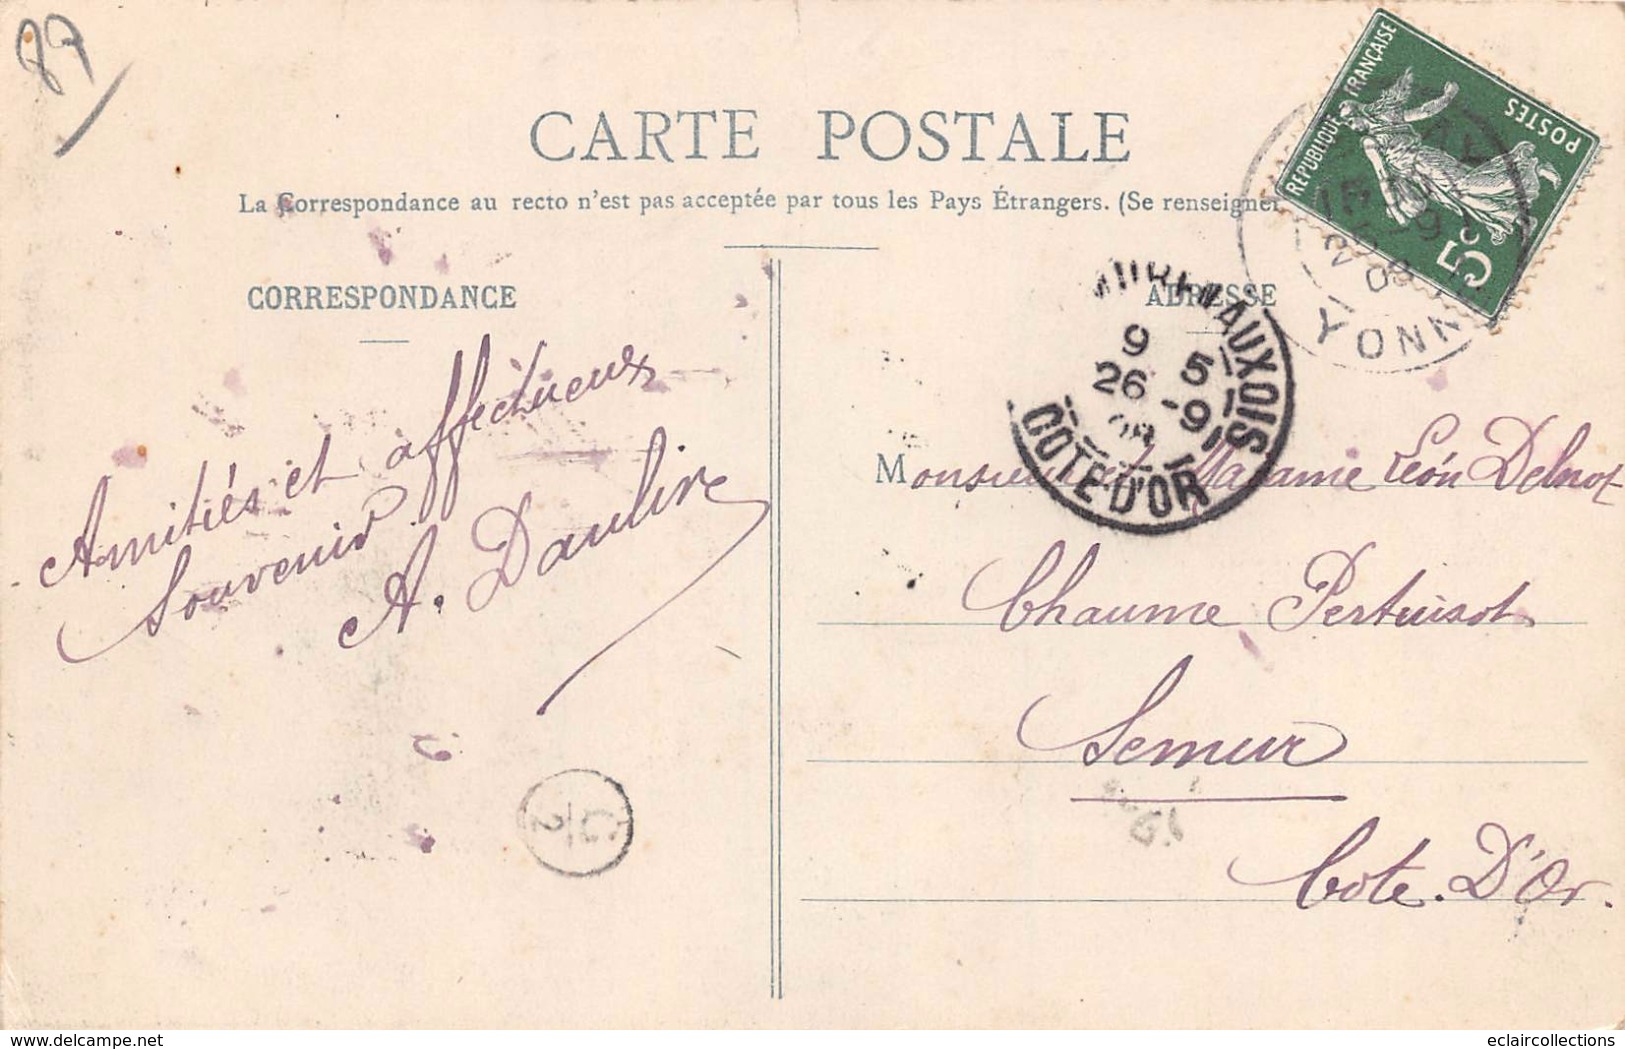 89
CARTE POSTALE
La Correspondance au recto n'est pas acceptée par tous les Pays Étrangers. (Se renseigner
CORRESPONDANCE
ADRESSE
RÉPUBLIQUE FRANÇAISE
POSTES
5c
YONN
AUXOIS
9 5
26 -9
08
COTE-D'OR
Amitiés et affectueux
Souvenir
A. Daulire
Monsieur et Madame Léon Delnot
Chaume Pertuisot
Semur
Cote. D'Or.
2
delcampe.net
eclaircollections